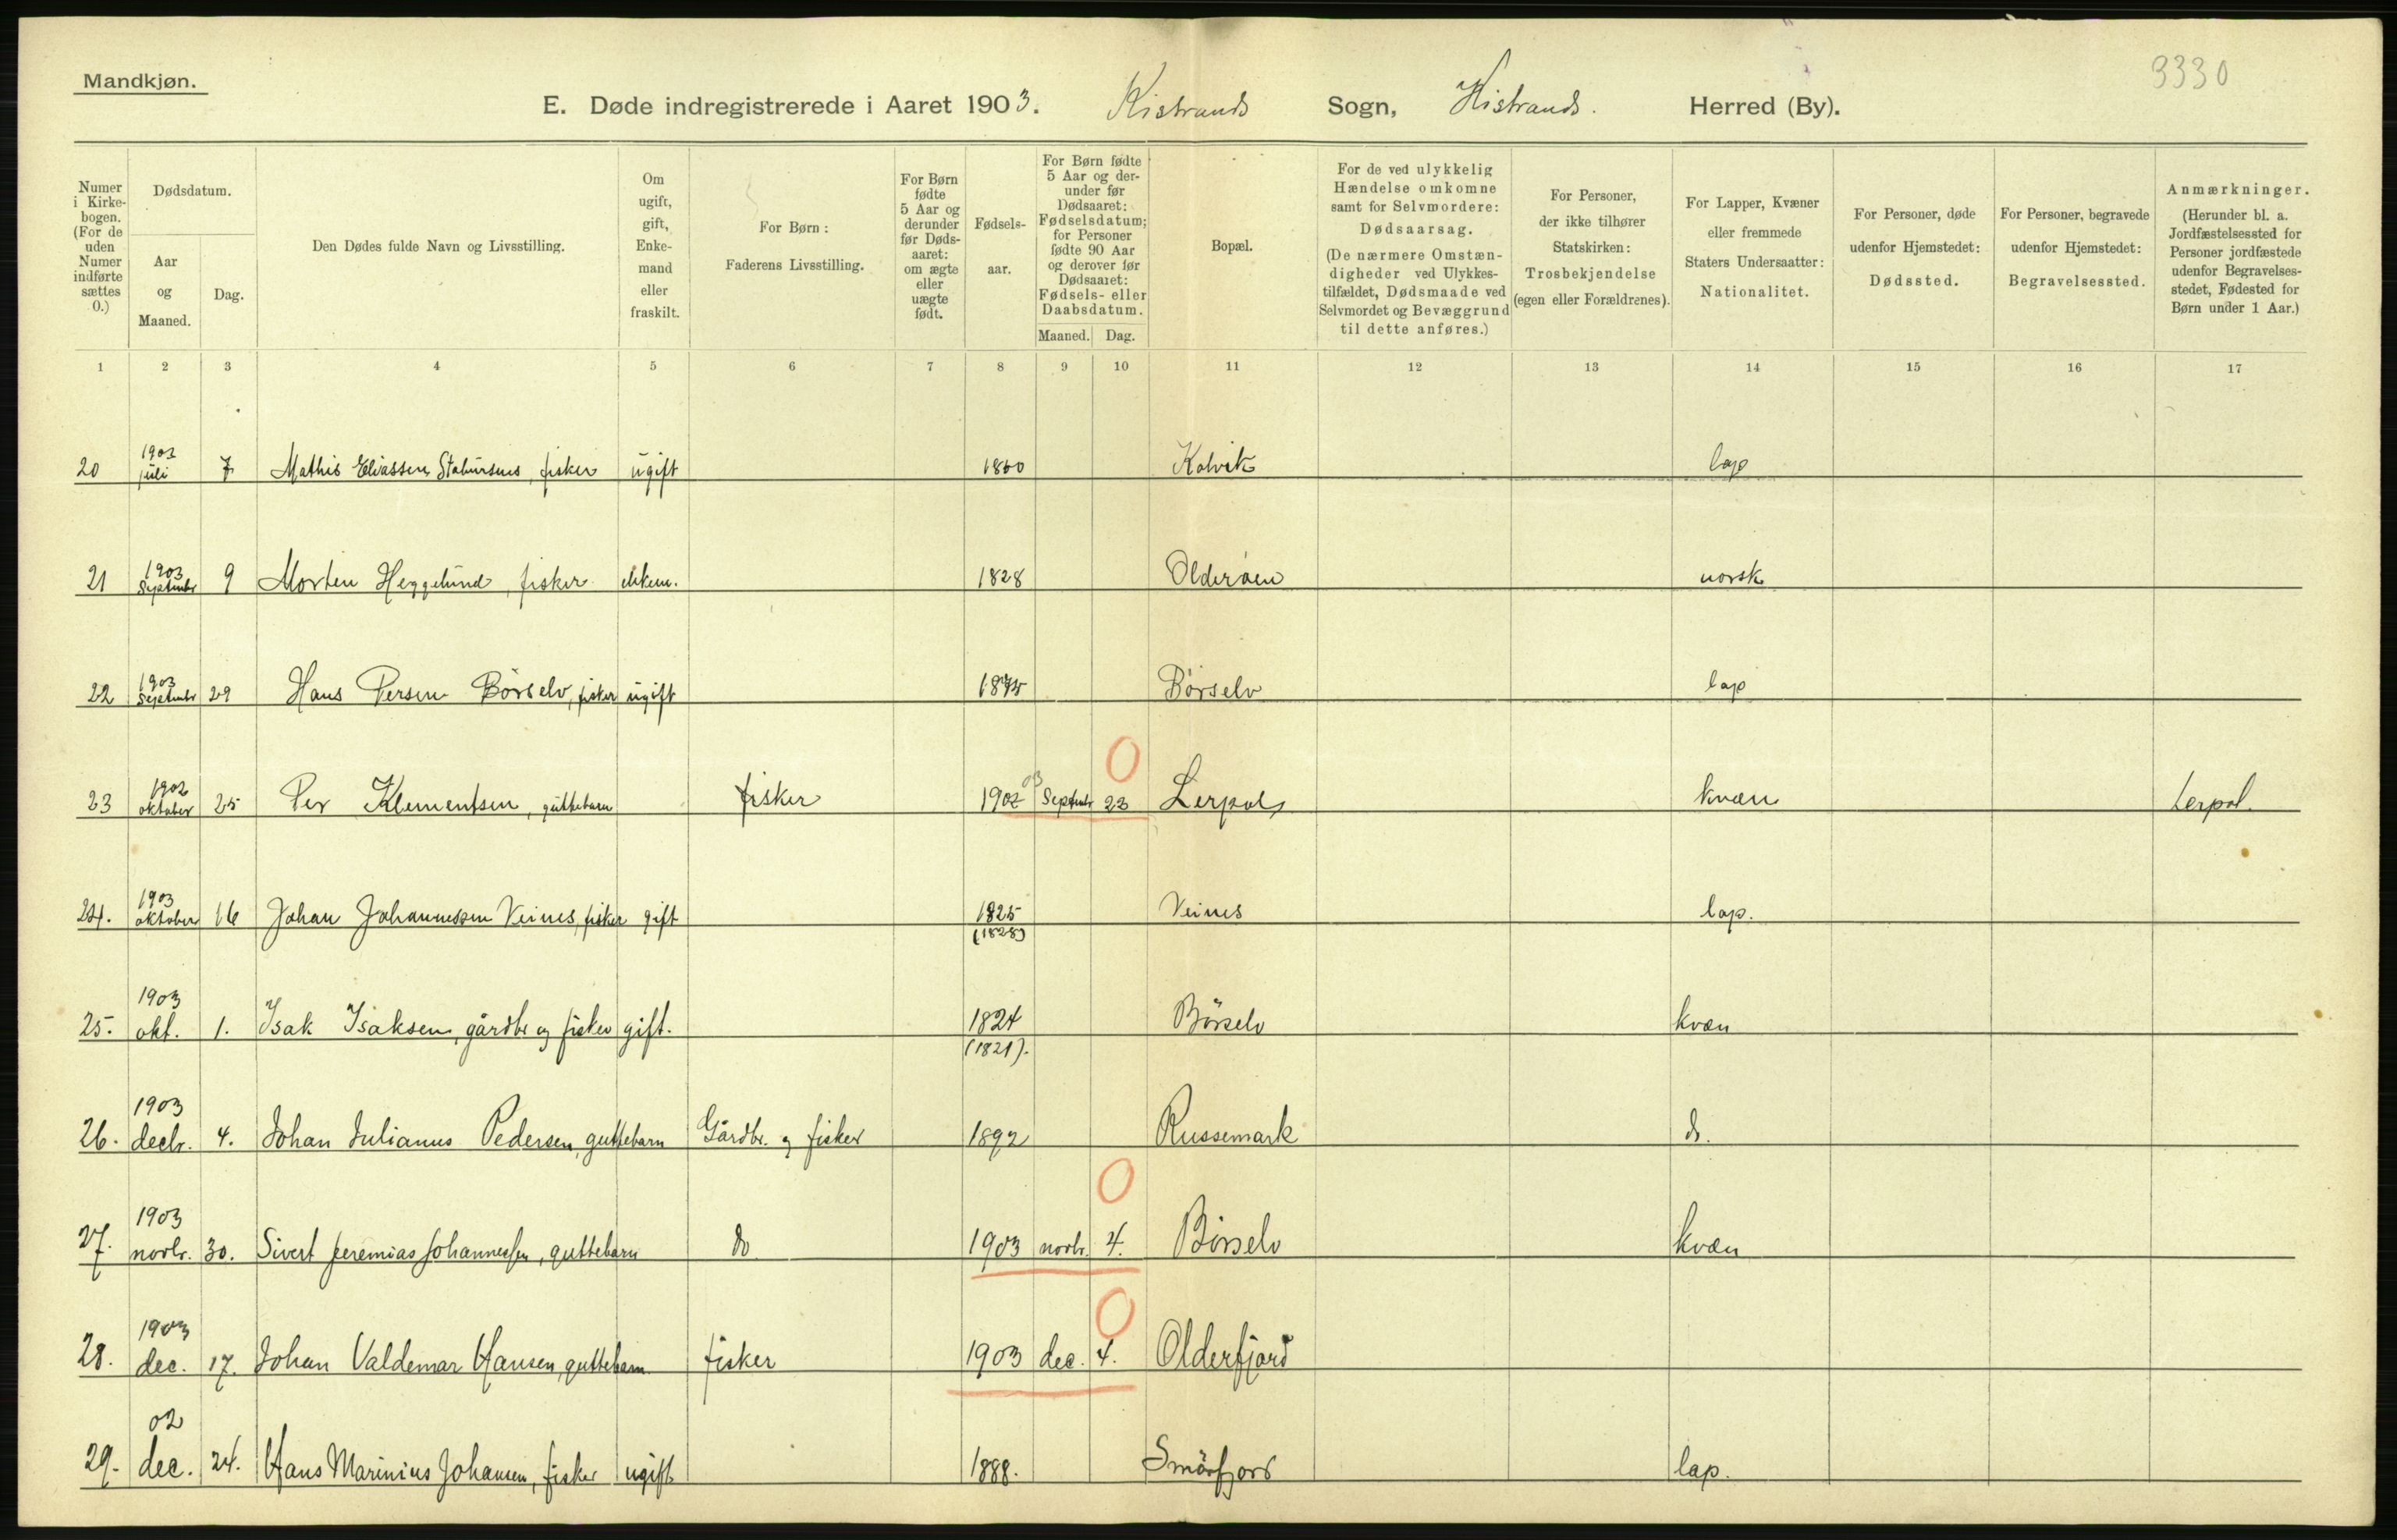 Mandkjøn.
3330
E. Døde indregistrerede i Aaret 1903. Kistrands Sogn, Kistrands. Herred (By).
Numer i Kirkebogen. (For de uden Numer indførte sættes 0.)
Dødsdatum.
Aar og Maaned.
Dag.
Den Dødes fulde Navn og Livsstilling.
Om ugift, gift, Enkemand eller fraskilt.
For Børn:
Faderens Livsstilling.
For Børn fødte 5 Aar og derunder før Dødsaaret: om ægte eller uægte født.
Fødselsaar.
For Børn fødte 5 Aar og derunder før Dødsaaret: Fødselsdatum; for Personer fødte 90 Aar og derover før Dødsaaret: Fødsels- eller Daabsdatum.
Maaned. Dag.
Bopæl.
For de ved ulykkelig Hændelse omkomne samt for Selvmordere: Dødsaarsag. (De nærmere Omstændigheder ved Ulykkestilfældet, Dødsmaade ved Selvmordet og Bevæggrund til dette anføres.)
For Personer, der ikke tilhører Statskirken: Trosbekjendelse (egen eller Forældrenes).
For Lapper, Kvæner eller fremmede Staters Undersaatter: Nationalitet.
For Personer, døde udenfor Hjemstedet: Dødssted.
For Personer, begravede udenfor Hjemstedet: Begravelsessted.
Anmærkninger. (Herunder bl. a. Jordfæstelsessted for Personer jordfæstede udenfor Begravelsesstedet, Fødested for Børn under 1 Aar.)
1 2 3 4 5 6 7 8 9 10 11 12 13 14 15 16 17
20 1903 juli 7 Mathis Eliassen Stabursnes, fisker ugift 1860 Kolvik lap
21 1903 September 9 Morten Heggelund, fisker enkem. 1828 Olderøen norsk
22 1903 September 29 Hans Persen Börselv, fisker ugift Börselv lap
23 1902 oktober 25 Per Klementsen, guttebarn fisker 1902 03 Septembr 23 0 Lerpol kvæn Lerpol.
24. 1903 oktober 16 Johan Johannessen Veines, fisker gift 1825 (1828) Veines lap.
25. 1903 okt. 1. Isak Isaksen, gårdbr og fisker gift. 1824 (1821). Börselv kvæn
26. 1903 decbr. 4. Johan Julianus Pedersen, guttebarn Gårdbr. og fisker 1892 Russemark do.
27. 1903 novbr. 30. Sivert Jeremias Johannessen, guttebarn do 1903 novbr. 4. 0 Börselv kvæn
28. 1903 dec. 17. Johan Valdemar Hansen, guttebarn fisker 1903 dec. 4. 0 Olderfjord
29. 02 dec. 24. Hans Marinius Johansen, fisker ugift 1888. Smörfjord lap.